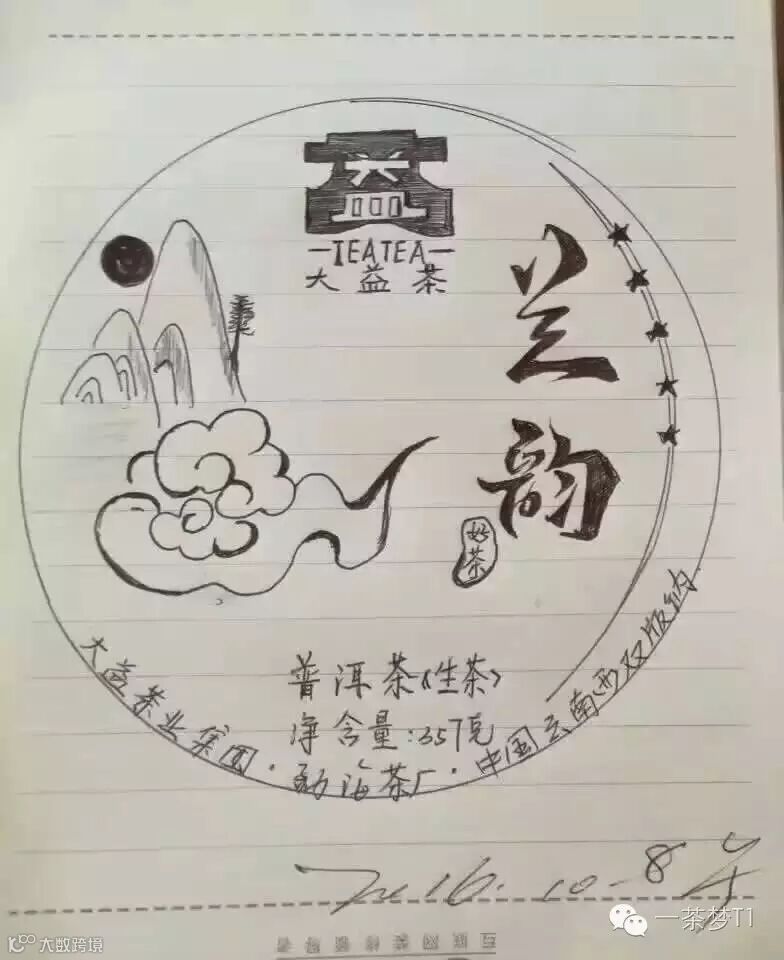 益
TEATEA
大益茶
兰韵
好茶
普洱茶《生茶》
净含量:357克
大益茶业集团·勐海茶厂·中国云南西双版纳
2016.10.8
一茶梦T1
大数跨境